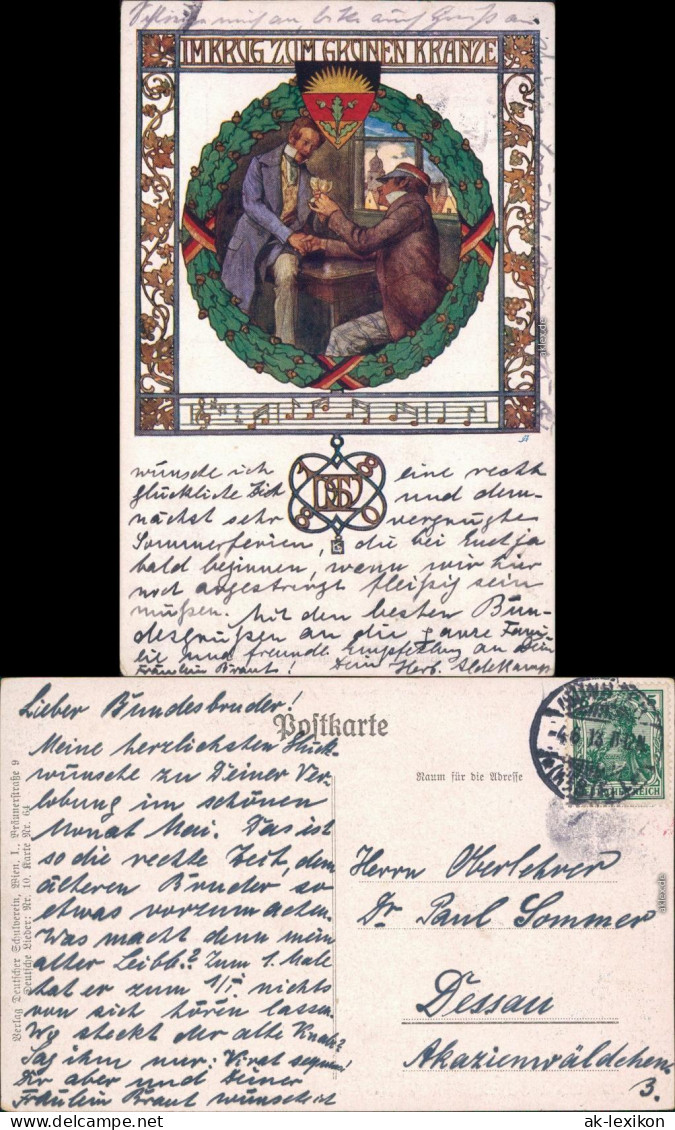 Schließe mich an, bitte auch Gruß an
IM KRUG ZUM GRÜNEN KRANZE
wünsche ich eine recht
glückliche Zeit und dem-
nächst sehr vergnügte
Sommerferien, die bei Euch ja
bald beginnen, wenn wir hier
noch angestrengt fleißig sein
müssen. Mit den besten Bun-
desgrüßen an die ganze Fami-
lie und freundl. Empfehlung an Dein
Fräulein Braut! Dein Herb.
18 80
Lieber Bundesbruder!
Meine herzlichsten Glück-
wünsche zu Deiner Ver-
lobung im schönen
Monat Mai. Das ist
so die rechte Zeit, dem
älteren Bruder so
etwas vorzumachen.
Was macht denn mein
alter Leibb.? Zum 1. Male
hat er zum 1/I nichts
von sich hören lassen.
Wo steckt der alte Knab?
Sag ihm nur: Vivat sequens!
Dir aber und Deiner
Fräulein Braut wünsche ich
Postkarte
Raum für die Adresse
5
DEUTSCHES REICH
Herrn Oberlehrer
Dr. Paul Sommer
Dessau
Akazienwäldchen
3.
Verlag Deutscher Schulverein, Wien, I., Bräunerstraße 9
Deutsche Lieder: Nr. 10. Karte Nr. 64
aklex.de
aklex.de
ak-lexikon